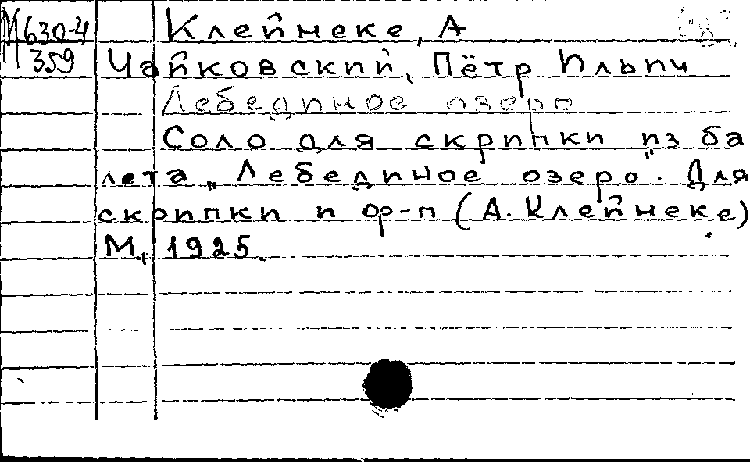 М630-4 Клейнеке, А
359 Чайковский, Пётр Ильич
Лебединое озеро
Соло для скрипки из ба
лета „Лебединое озеро". Для
скрипки и ф-п (А. Клейнеке)
М., 1925.